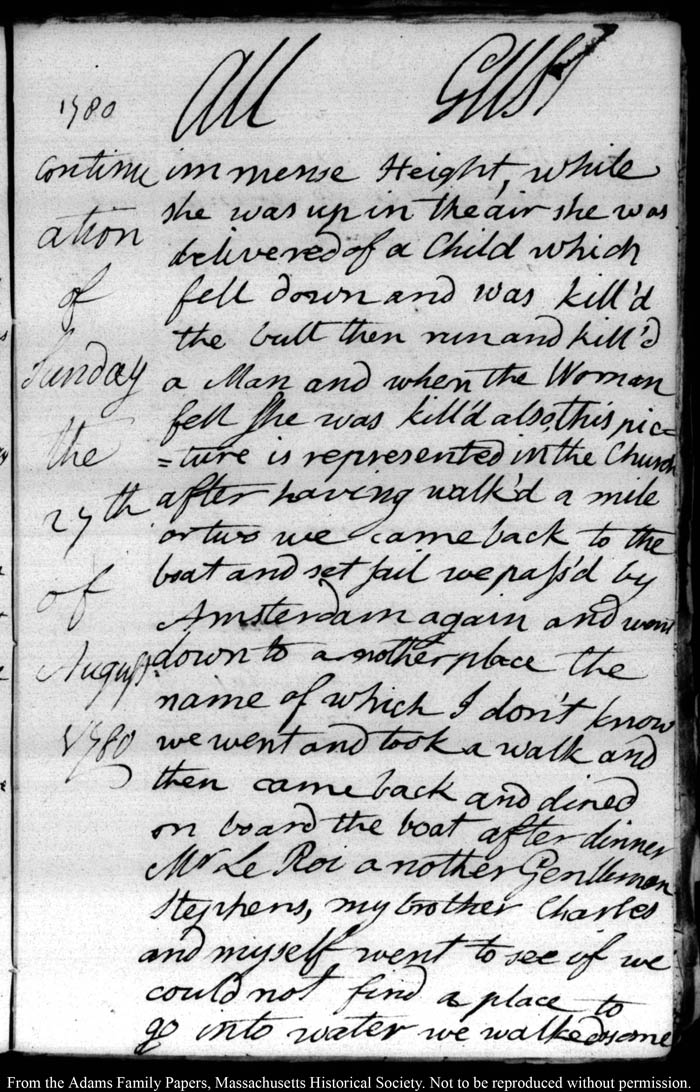 1780 AUGUST
continu
ation
of
Sunday
the
27th
of
August
1780
immense Height, while
she was up in the air she was
delivered of a Child which
fell down and was kill'd
the bull then run and kill'd
a Man and when the Woman
fell She was kill'd also, this pic=
=ture is represented in the Church
after having walk'd a mile
or two we came back to the
boat and set sail we pass'd by
Amsterdam again and went
down to another place the
name of which I don't know
we went and took a walk and
then came back and dined
on board the boat after dinner
Mr Le Roi another Gentleman
Stephens, my brother Charles
and myself went to see if we
could not find a place to
go into water we walked some
From the Adams Family Papers, Massachusetts Historical Society. Not to be reproduced without permission.